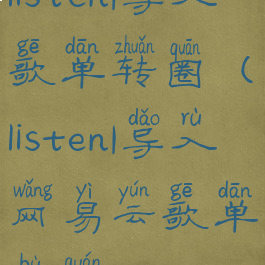 listen1导入
gē dān zhuǎn quān
歌单转圈（
dǎo rù
listen1导入
wǎng yì yún gē dān
网易云歌单
bù quán